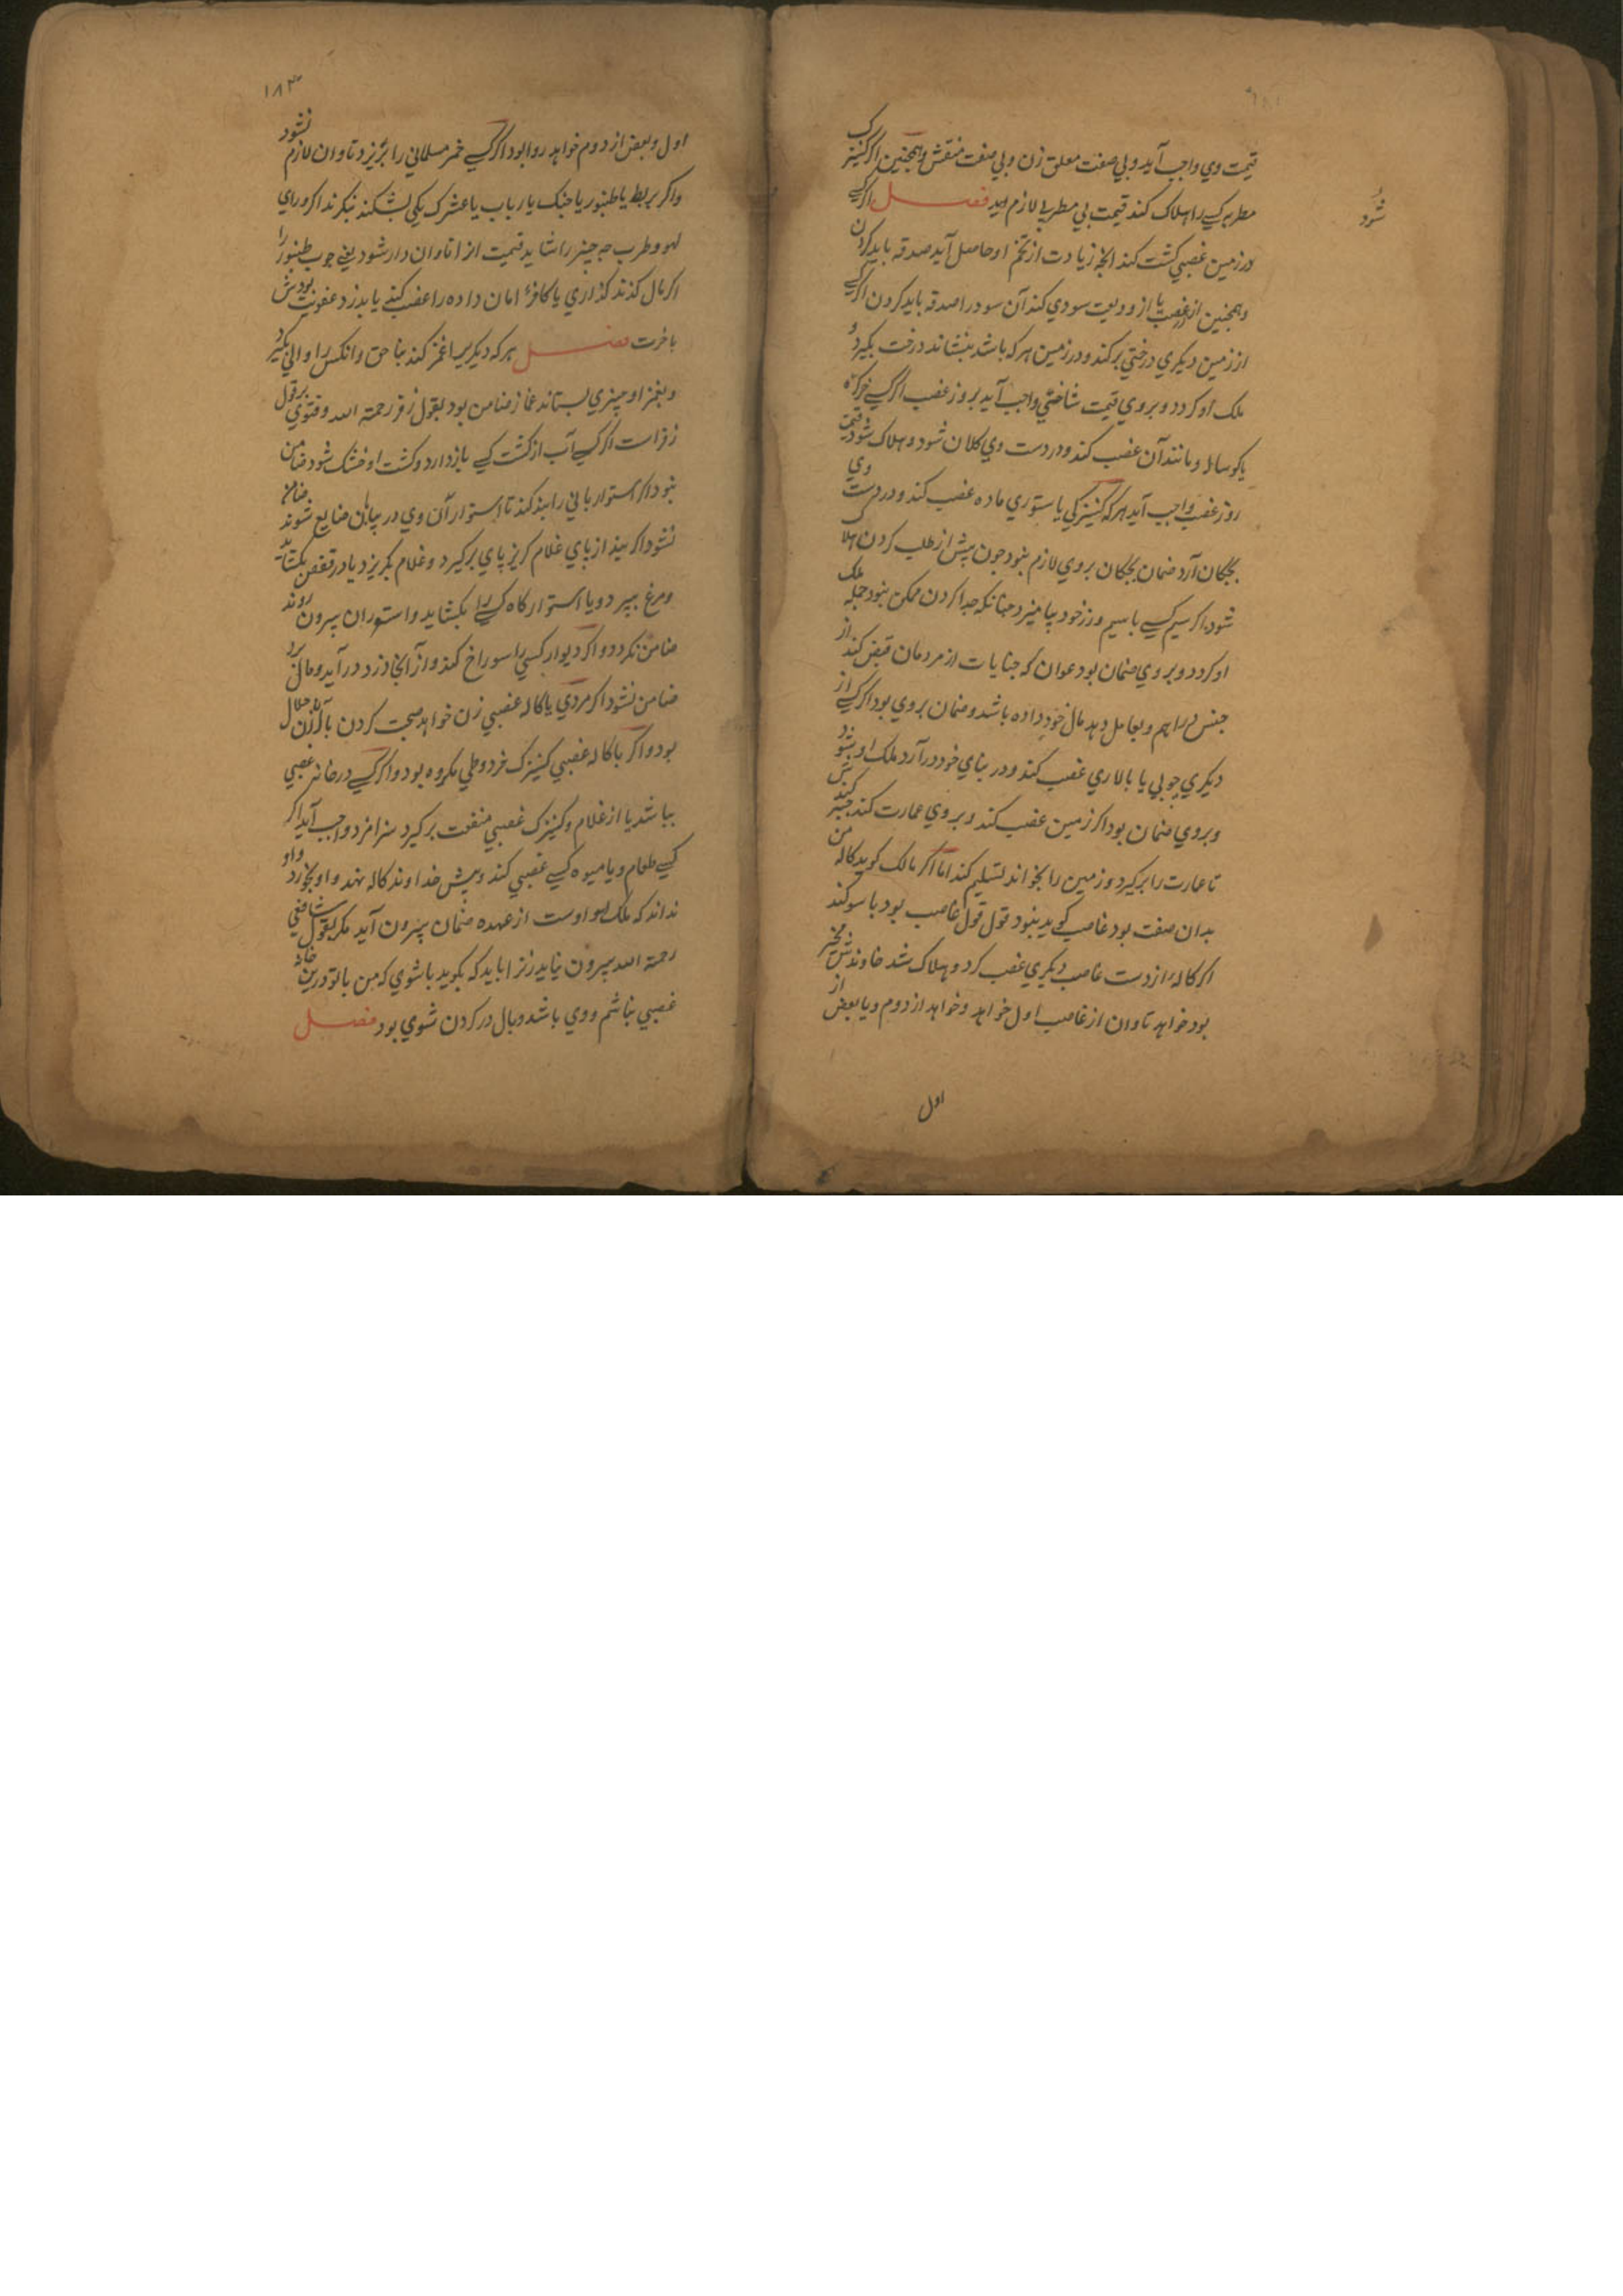 قیمت وي واجب آید و بي صفت معلق زن و بي صفت منقش و همچنین اگر کنیزک
مطربه کسے را هلاک کند قیمت بي مطربي لازم اید فصل اگر کسے
شود
در زمین غصبي کشت کند انچه زیادت از تخم او حاصل آید صدقه باید کردن
و همچنین از غصب یا از ودیعت سودي کند آن سود را صدقه باید کردن اگر کسے
از زمین دیکري درختي بر کند و در زمین هر که باشد بنشاند درخت بکیرد و
ملک او کردد و بروي قیمت شاخي واجب آید بروز غصب اگر کسے خر کره
یا کوساله و مانند آن غصب کند و در دست وي کلان شود و هلاک شود قیمت
روز غصب واجب آید هر که کنیزکي یا ستوري ماده غصب کند و در دست وي
بچکان آرد ضمان بچکان بروي لازم نبود چون پیش از طلب کردن هلاک
شود اگر سیم کسے با سیم و زر خود بیامیزد چنانکه جدا کردن ممکن نبود جمله ملک
او کردد و بروي ضمان بود عوان که جنایات از مردمان قبض کند از
جنس دراهم و بعامل دهد مال خود داده باشد و ضمان بروي بود اگر کسے از
دیکري چوبي یا بالاري غصب کند و در بناي خود در آرد ملک او بشود
و بروي ضمان بود اگر زمین غصب کند و بروي عمارت کند جبرش کنند
تا عمارت را بر کیرد و زمین را بخداوند تسلیم کند اما اگر مالک کوید کاله من
بدان صفت بود غاصب کوید نبود قول قول غاصب بود با سوکند
اگر کاله از دست غاصب دیکري غصب کرد و هلاک شد خاوندش مخیر
بود خواهد تاوان از غاصب اول خواهد و خواهد از دوم و یا بعض از
اول
۱۸۳
اول و بعض از دوم خواهد روا بود اگر کسے خمر مسلماني را بریزد تاوان لازم نشود
و اگر بربط یا طنبور یا چنک یا رباب یا عشرک یکي بشکند بنکرند اگر وراي
لهو و طرب چه چیز را شاید قیمت از ان تاوان دار شود یعنے چوب طنبور را
اگر مال کذاري یا کافر امان داده را غصب کند یا بدزدد عقوبت بودش
باخرت فصل هر که دیکریرا غمز کند بناحق و انکس را والي بکیرد
و بغمز او چیزي بستاند غماز ضامن بود بقول زفر رحمة الله و فتوي بر قول
زفر است اگر کسے آب از کشت کسے باز دارد و کشت او خشک شود ضامن
نبود اگر استوار باني را بند کند تا استوارآن وي در بیابان ضایع شوند ضامن
نشود اگر بند از پاي غلام کریز پاي بر کیرد و غلام بکریزد یا در قفص بکشاید
و مرغ بپرد و یا استوار کاه کسے را بکشاید و استوران بیرون روند
ضامن نکردد و اگر دیوار کسي را سوراخ کند و از آنجا دزد در آید و مالي برد
ضامن نشود اگر مردي با کاله غصبي زن خواهد صحبت کردن با آن زن حلال
بود و اگر با کاله غصبي کنیزک خرد وطي مکروه بود و اگر کسے در خانه غصبي
بباشد یا از غلام و کنیزک غصبي منفعت بر کیرد سزا مزد واجب آید اگر
کسے طعام و یا میوه کسے غصبي کند و پیش خداوند کاله نهد و او بخورد و او
نداند که ملک او است از عهده ضمان بیرون آید مکر بقول شافعي
رحمة الله بیرون نیاید زنرا باید که بکوید با شوي که من با تو در ین خانه
غصبي نباشم و وي باشد وبال در کردن شوي بود فصل